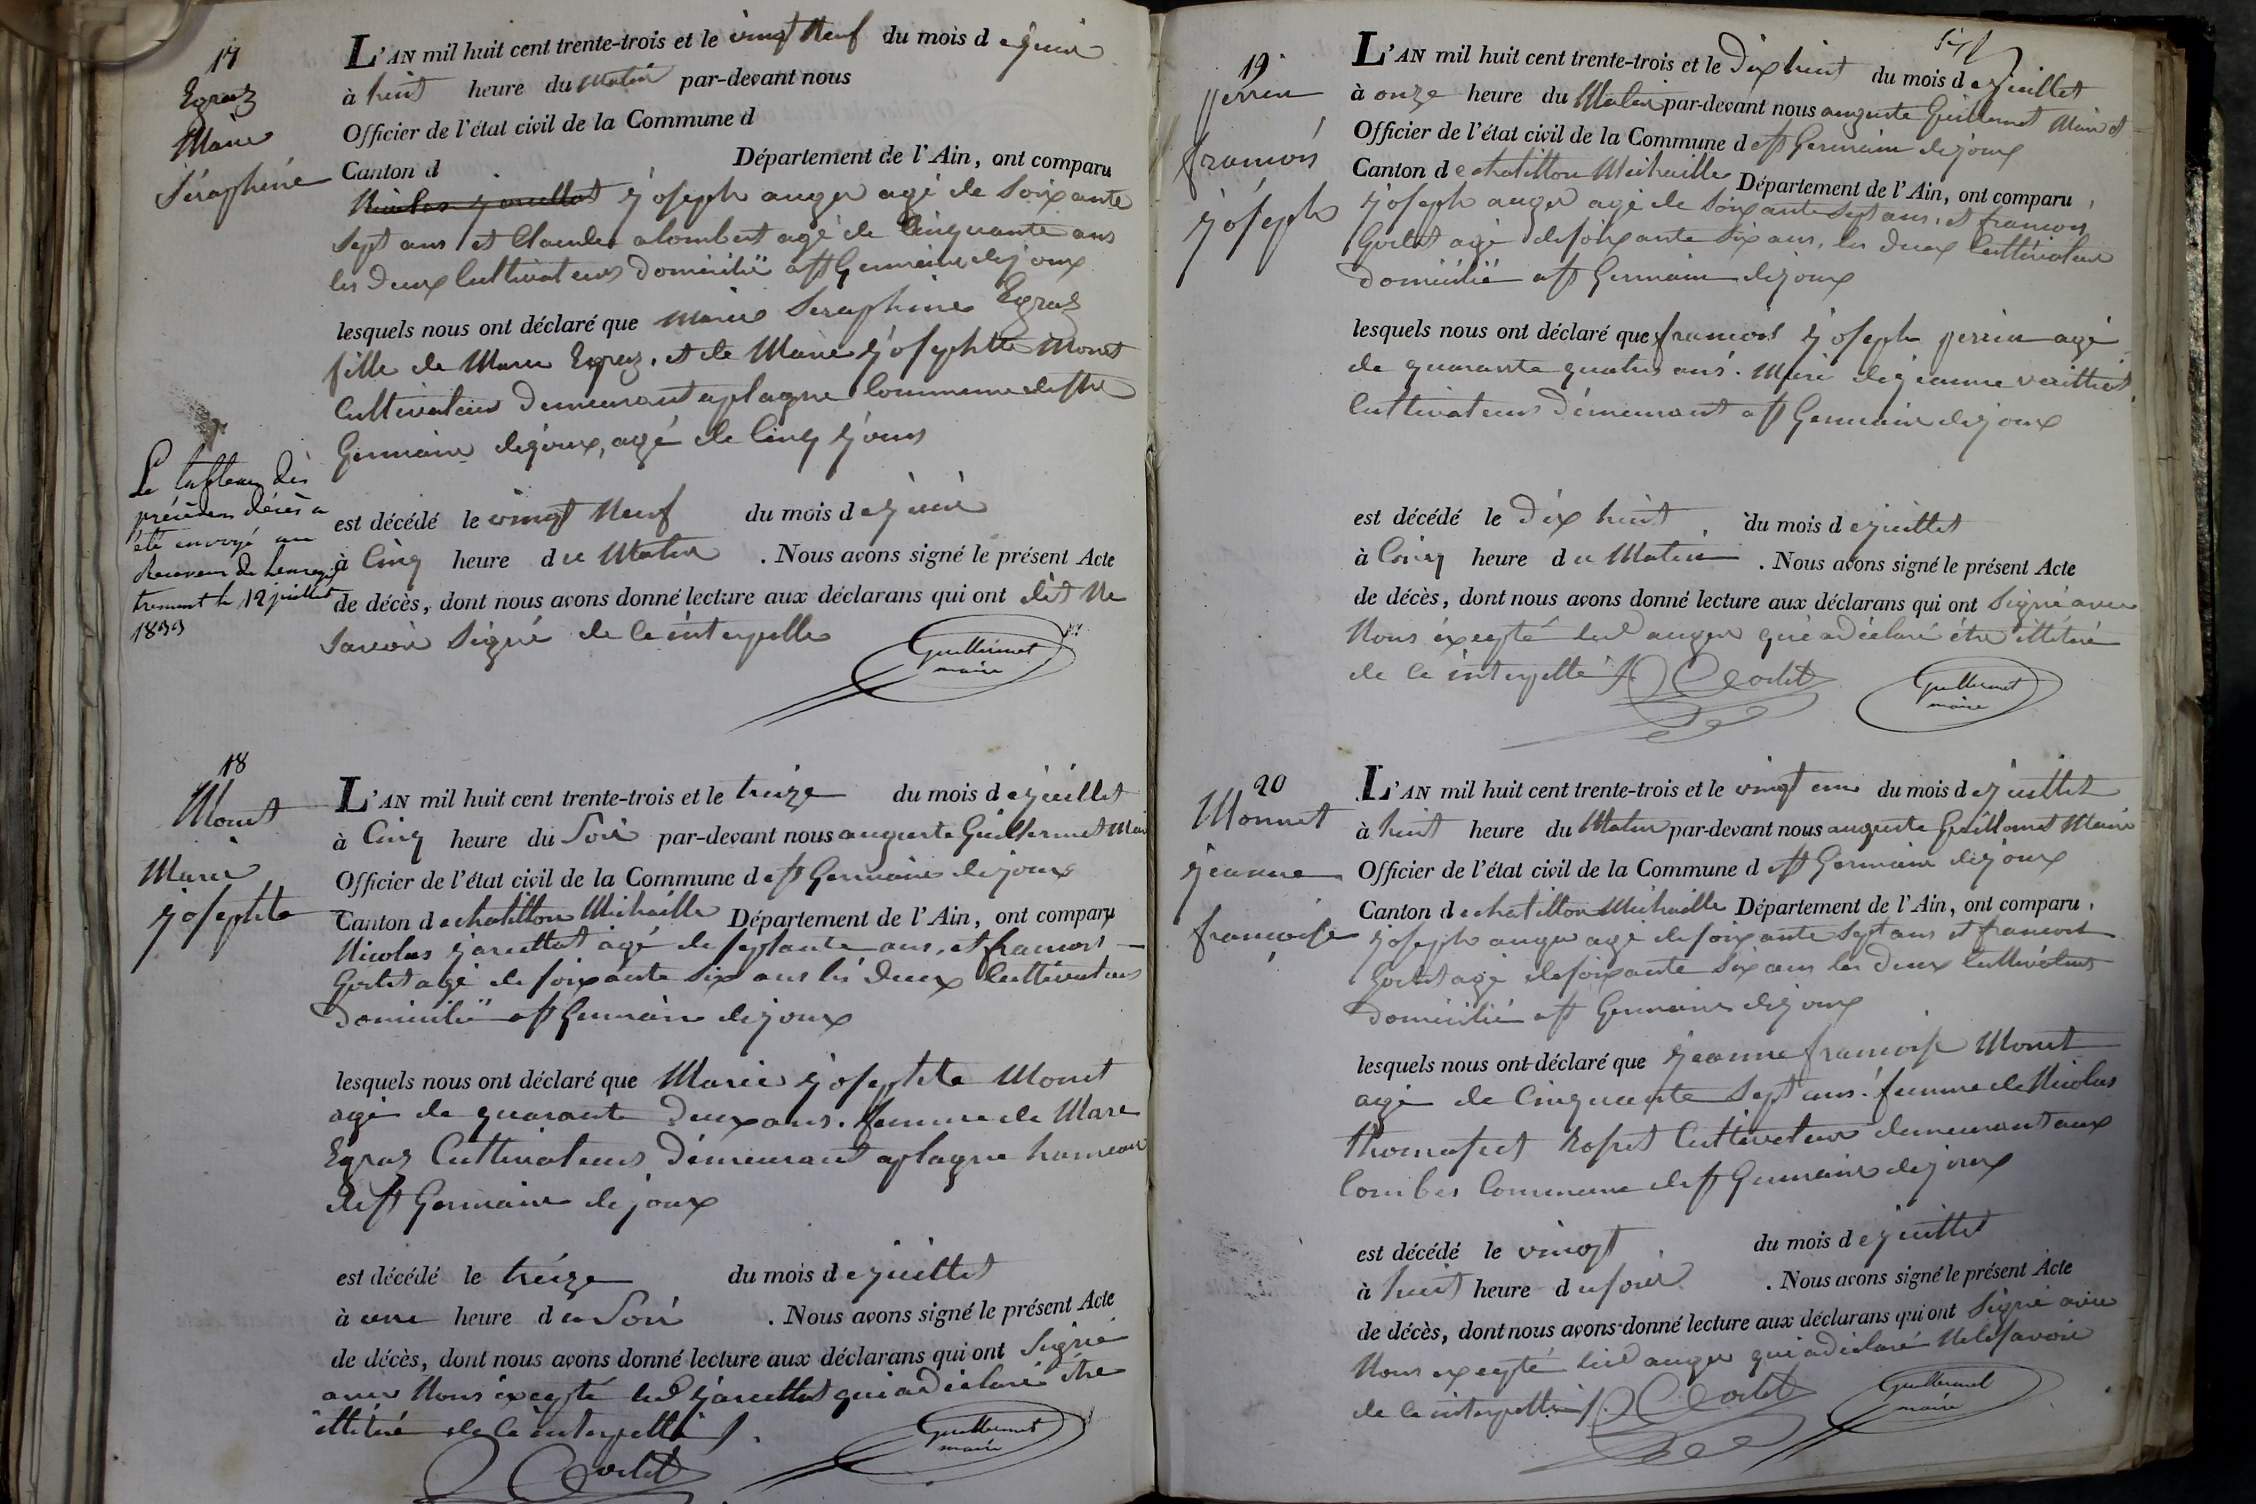 17
Egraz
Marie
Séraphine
L'AN mil huit cent trente-trois et le vingt Neuf du mois d ejuin
à huit heure du Matin par-devant nous
Officier de l'état civil de la Commune d
Canton d Département de l'Ain, ont comparu
Nicolas Jarcellat joseph auger agé de Soixante
Sept ans et Claude alombert agé de Cinquante ans
les Deux Cultivateurs Domicilié a St Germain dejoux
lesquels nous ont déclaré que Marie Seraphine Egraz
fille de Marc Egraz, et de Marie josephte Monet
Cultivateur Demeurant aplagne Commune de St
Germain dejoux, agé de Cinq jours
Le tableau des
précédens décès a
été envoyé au
Receveur de l'enregis
trement le 12 juillet
1833
est décédé le vingt Neuf du mois d ejuin
à Cinq heure du Matin . Nous avons signé le présent Acte
de décès, dont nous avons donné lecture aux déclarans qui ont dit Ne
Savoir Signé de ce interpellé
Guillermet
maire
18
Monet
Marie
josephte
L'AN mil huit cent trente-trois et le treize du mois d ejuillet
à Cinq heure du Soir par-devant nous auguste Guillermet Maire
Officier de l'état civil de la Commune de St Germain dejoux
Canton d echatillon Michaille Département de l'Ain, ont comparu
Nicolas jarcellat agé de septante ans, et francois
Godet agé de soixante Six ans les Deux Cultivateurs
Domicilié a St Germain dejoux
lesquels nous ont déclaré que Marie josephte Monet
agé de quarante Deux ans. femme de Marc
Egraz Cultivateurs Demeurant aplagne hameau
de St Germain dejoux
est décédé le treize du mois d ejuillet
à une heure du Soir . Nous avons signé le présent Acte
de décès, dont nous avons donné lecture aux déclarans qui ont Signé
avec Nous éxcepté led jarcellat qui a déclaré être
illitéré de ce interpellé
Godet
Guillermet
maire
19
perrin
francois
joseph
L'AN mil huit cent trente-trois et le Dix huit du mois d ejuillet
à onze heure du Matin par-devant nous auguste Guillermet Maire
Officier de l'état civil de la Commune de St Germain dejoux
Canton d echatillon Michaille Département de l'Ain, ont comparu
joseph auger agé de Soixante Sept ans, et francois
Godet agé de soixante Six ans, les Deux Cultivateurs
Domicilié a St Germain dejoux
lesquels nous ont déclaré que francois joseph perrin agé
de quarante quatre ans. Mari de jeanne
Cultivateurs Démeurant a St Germain dejoux
est décédé le Dix huit du mois d ejuillet
à Cinq heure du Matin . Nous avons signé le présent Acte
de décès, dont nous avons donné lecture aux déclarans qui ont Signé avec
Nous éxcepté led auger qui a déclaré être illitéré
de ce interpellé
Godet
Guillermet
maire
20
Monnet
jeanne
francoise
L'AN mil huit cent trente-trois et le vingt un du mois d ejuillet
à huit heure du Matin par-devant nous auguste Guillermet Maire
Officier de l'état civil de la Commune de St Germain dejoux
Canton d echatillon Michaille Département de l'Ain, ont comparu
joseph auger agé de soixante Sept ans et francois
Godet agé de soixante Six ans les Deux Cultivateurs
Domicilié a St Germain dejoux
lesquels nous ont déclaré que jeanne francoise Monet
agé de Cinquante Sept ans. femme de Nicolas
Cultivateurs demeurant aux
Combes Commune de St Germain dejoux
est décédé le vingt du mois d ejuillet
à huit heure du soir . Nous avons signé le présent Acte
de décès, dont nous avons donné lecture aux déclarans qui ont Signé avec
Nous excepté led auger qui a déclaré Ne le savoir
de ce interpellé
Godet
Guillermet
maire